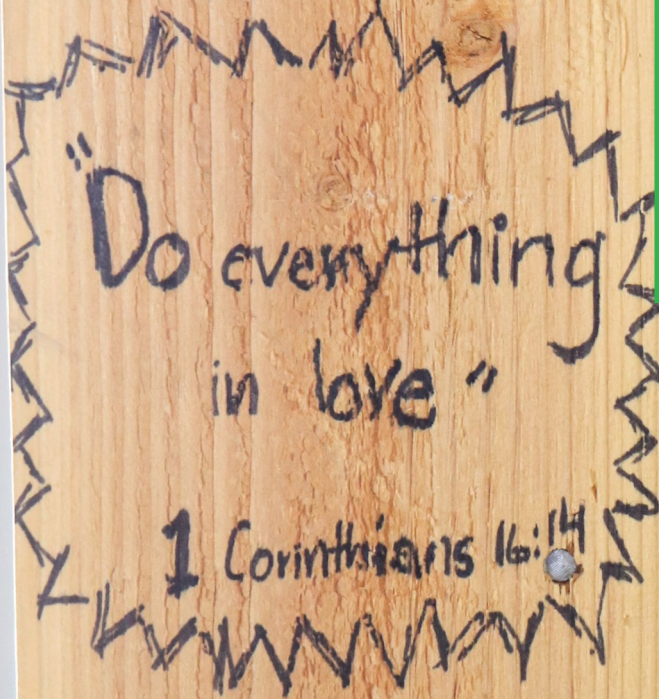 "Do everything
in love"
1 Corinthians 16:14